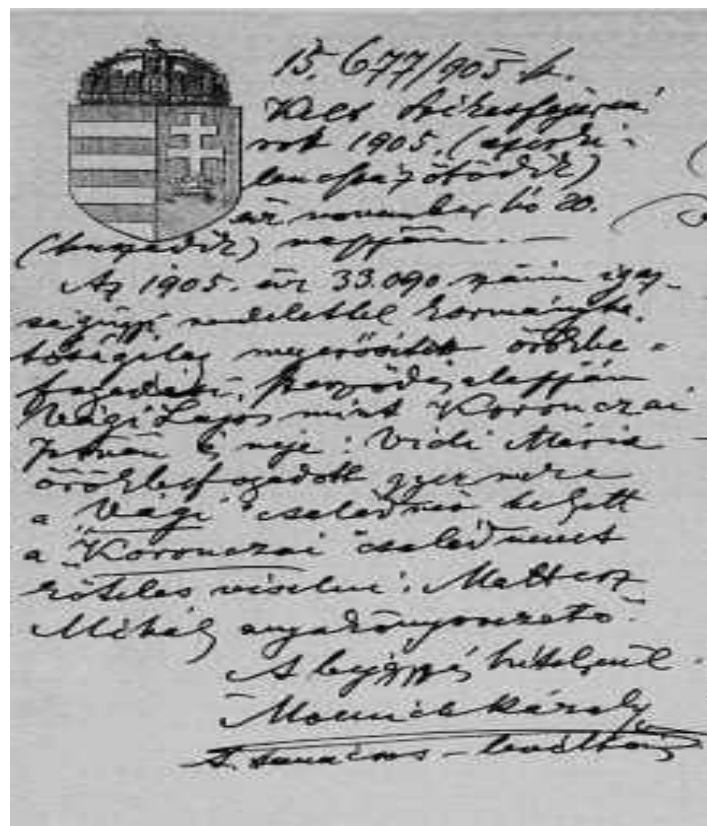 15.677/905 k.
Kelt Székesfejérvá-
rott 1905. (egyezerki-
lencszázötödik)
év november hó 20.
(huszadik) napján. —
Az 1905. évi 33.090. számu igaz-
ságügyi rendelettel kormányha-
tóságilag megerősített örökbe-
fogadási szerződés alapján
Vági Lajos mint Koronczai
István és neje: Vidi Mária
örökbefogadott gyermeke
a "Vági" családnév helyett
a "Koronczai" családnevet
köteles viselni.
Mihály anyakönyvvezető.
A bejegyzés hiteléül.
Károly